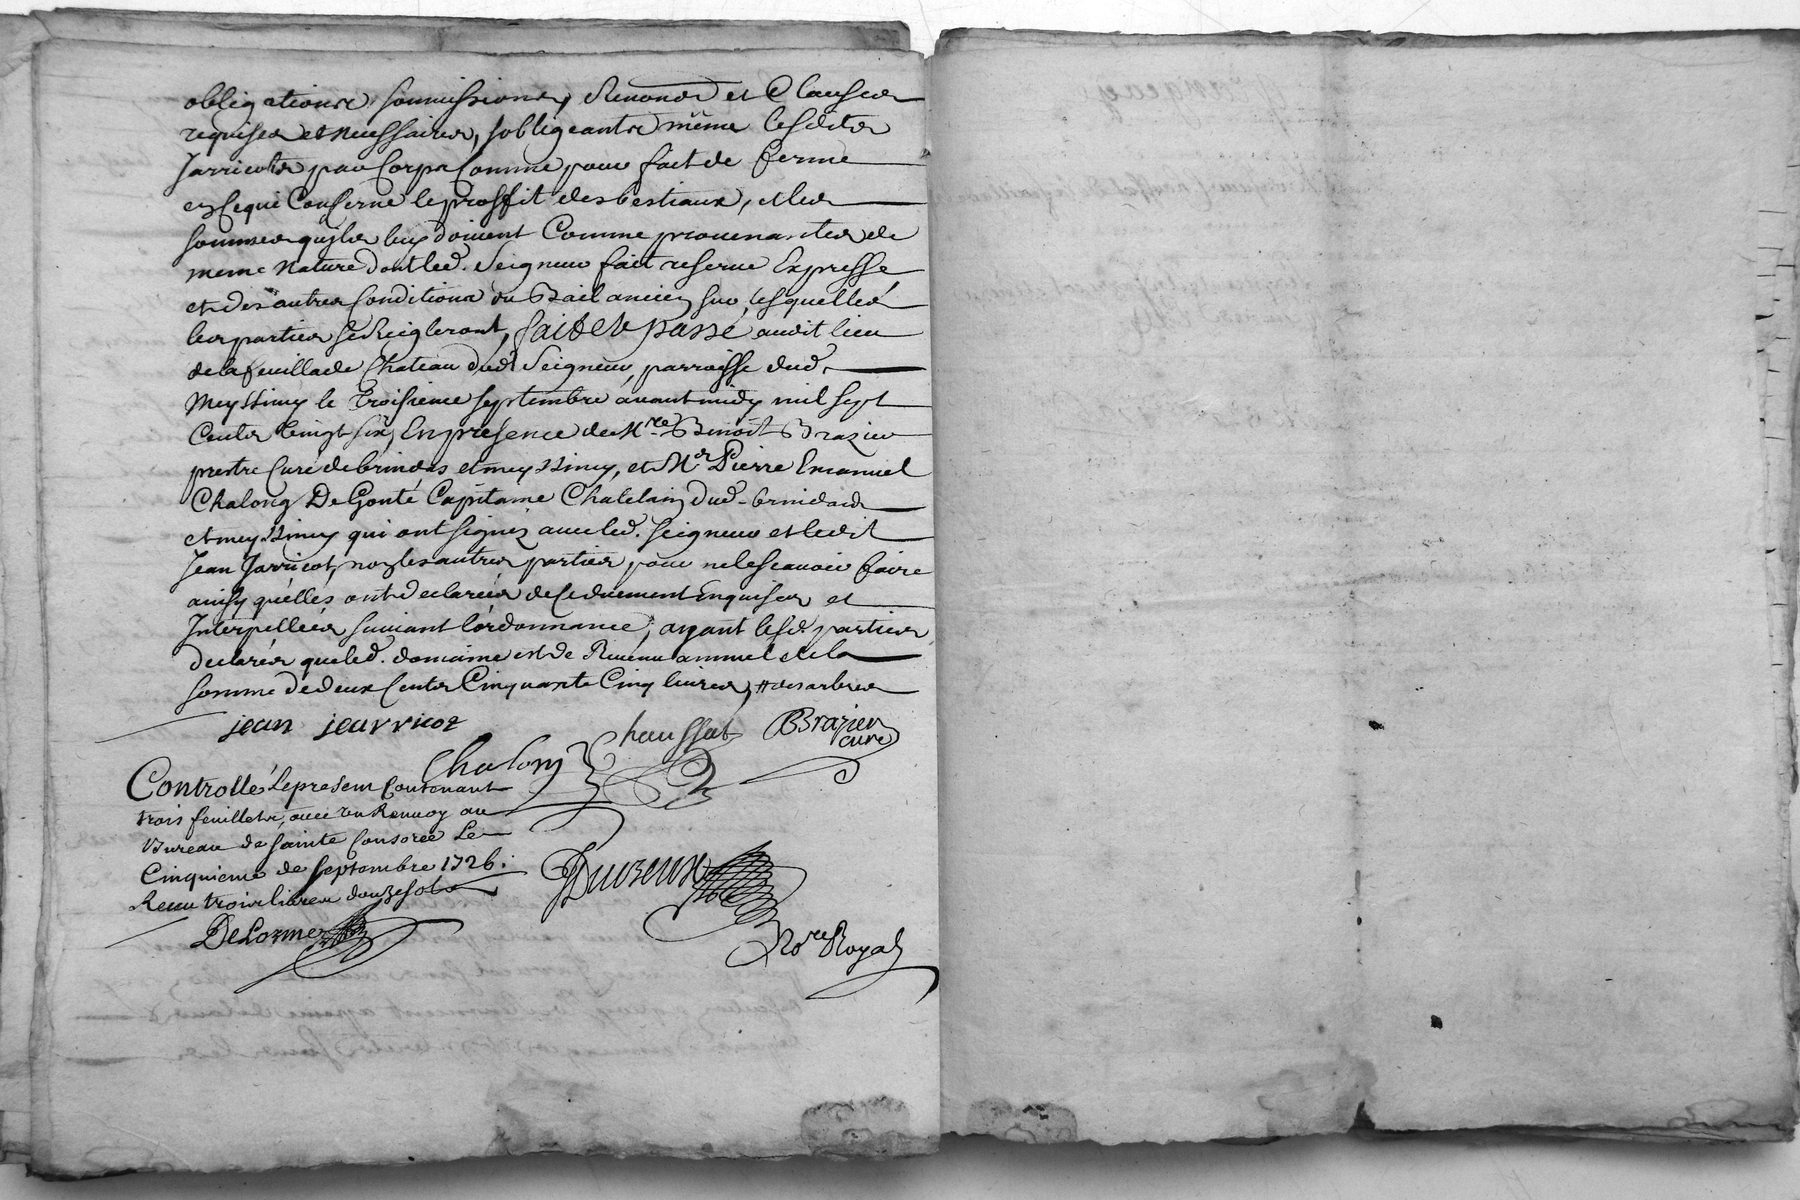 obligations, soumissions, Renonces et Clauses
requises et necessaires, sobligeants même lesdits
Jarricots par Corps Comme pour fait de ferme
en ce qui Conserne le proffit des bestiaux, et les
sommes quils luy doivent Comme provenantes de
meme Nature dont led. Seigneur fait reserve Expresse
et des autres Conditions du Bail ancien sur lesquelles
les parties se Reigleront, fait et passé audit lieu
de la feuillade Chateau dud. Seigneur, parroisse dud.
Meyssimy le troisieme septembre avant midy mil sept
Cents vingt six, En presence de Mre Benoit Brazier
prestre Curé de brindas et meyssimy, et Mr Pierre Emanuel
Chalong De Gonté Capitaine Chatelain dud. brindas
et meyssimy qui ont signez avec led. Seigneur et ledit
Jean Jarricot, non les autres parties pour ne le scavoir faire
ainsy qu'elles ont declarées de ce duement Enquises et
Interpellées suivant l'ordonnance, ayant lesd. parties
declarés que led. domaine est de Revenu annuel de la
somme de deux Cents Cinquante Cinq livres, # des arbres
jean jeurricot
Chaussat
BBrazier
curé
Chalon
Controllé le present Contenant
trois feuillets, avec un Renvoy au
Bureau de sainte Consorce Le
Cinquieme de septembre 1726.
Receu trois livres douze sols
Duvreux
DeLorme
Nore Royal